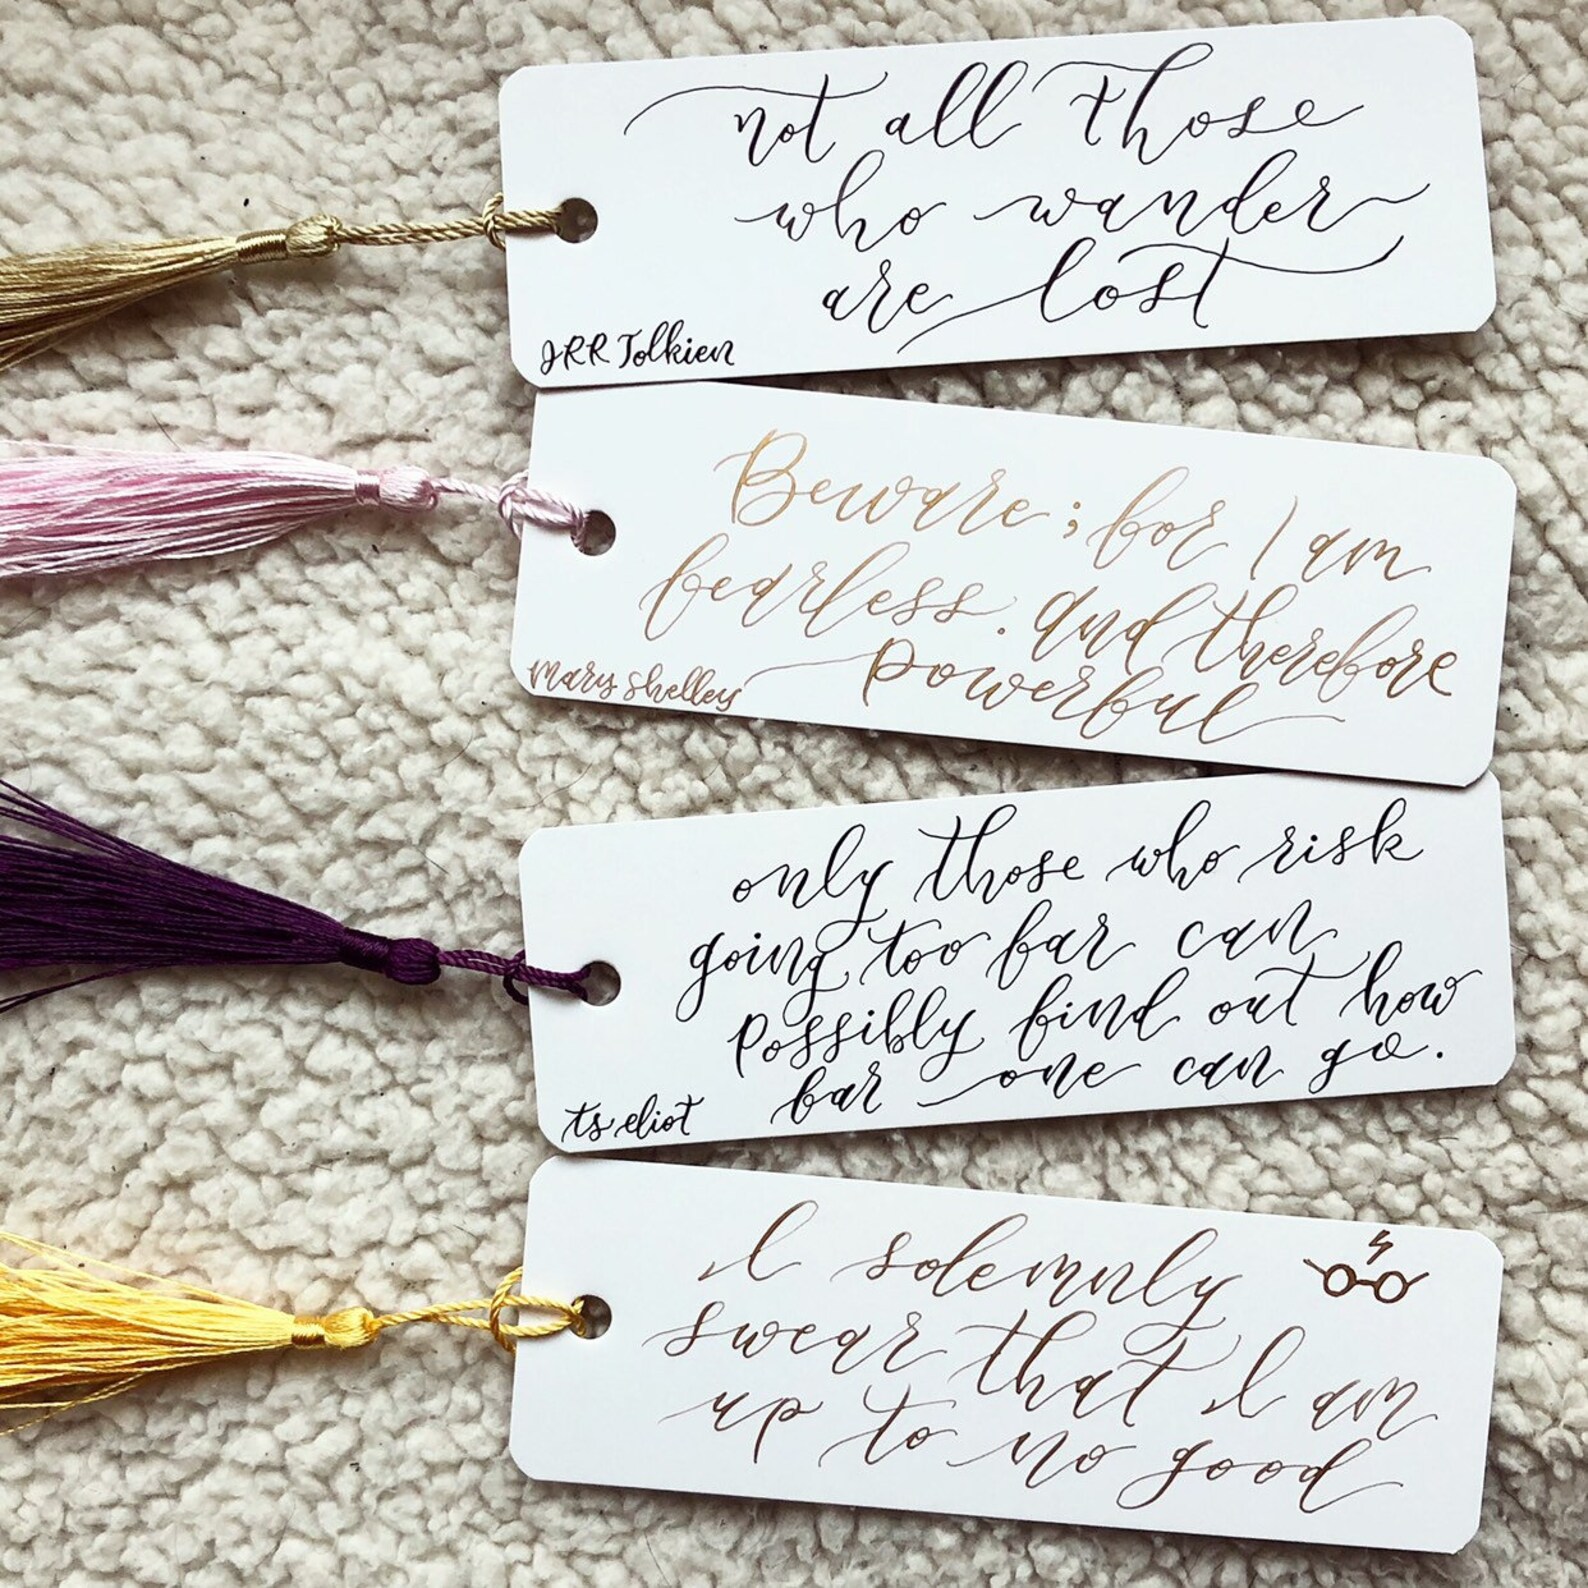 not all those
who wander
are lost
JRR Tolkien
Beware; for I am
fearless. and therefore
powerful
mary shelley
only those who risk
going too far can
possibly find out how
far one can go.
ts eliot
I solemnly
swear that I am
up to no good